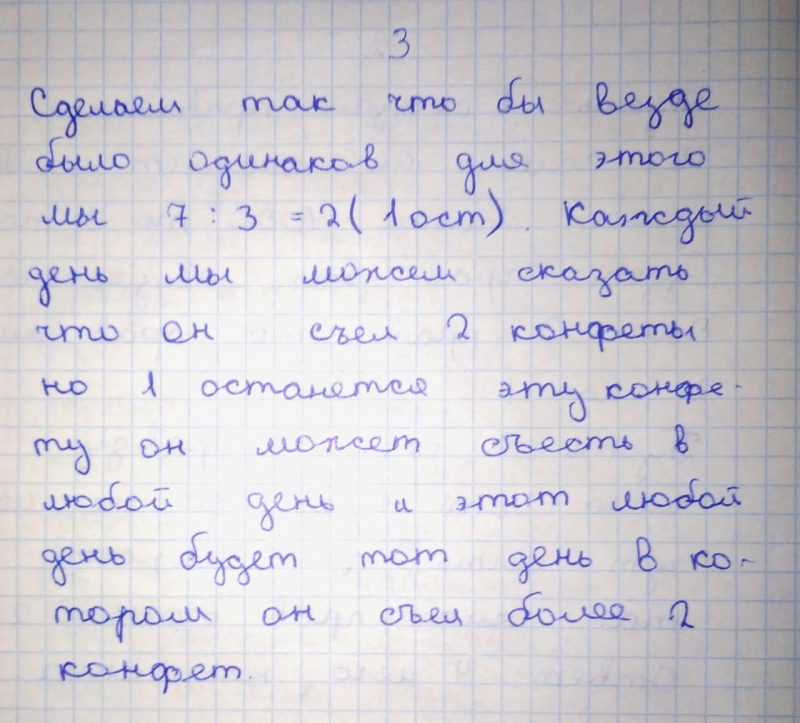 3
Сделаем так что бы везде
было одинаков для этого
мы 7 : 3 = 2 ( 1 ост) . Каждый
день мы можем сказать
что он съел 2 конфеты
но 1 останется эту конфе-
ту он может съесть в
любой день и этот любой
день будет тот день в ко-
тором он съел более 2
конфет.